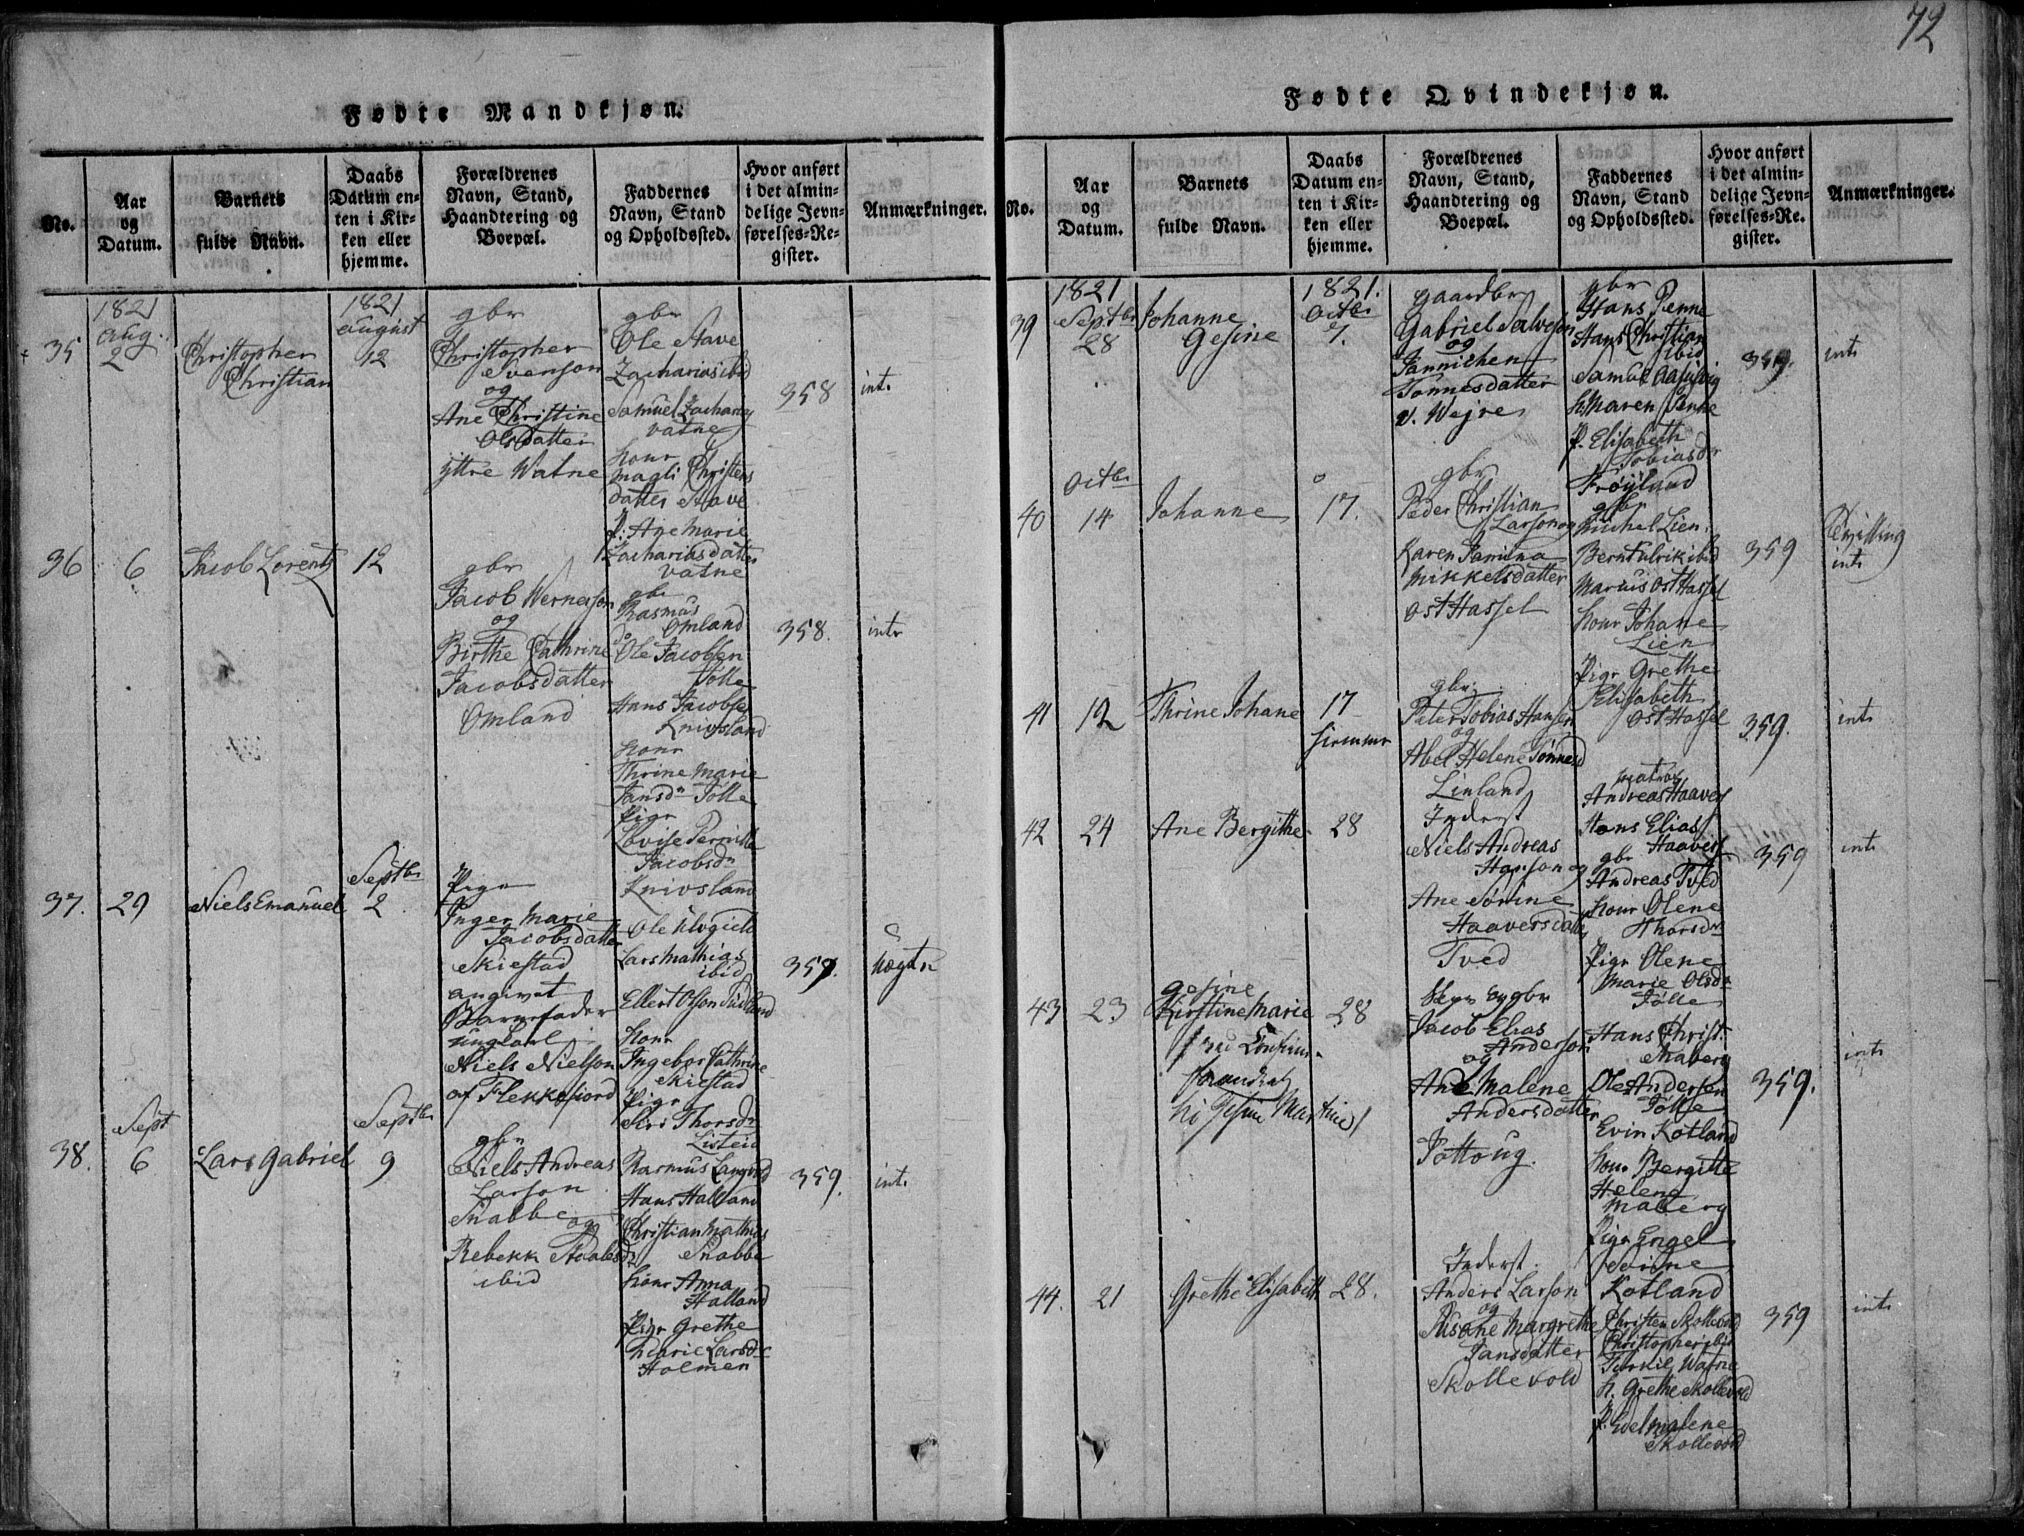 72
Fødte Mandkjøn.
No.
Aar
og
Datum.
Barnets
fulde Navn.
Daabs
Datum en-
ten i Kir-
ken eller
hjemme.
Forældrenes
Navn, Stand,
Haandtering og
Boepæl.
Faddernes
Navn, Stand
og Opholdssted.
Hvor anført
i det almin-
delige Jevn-
førelses-Re-
gister.
Anmærkninger.
35
1821
Aug.
2
Christopher
Christian
1821
August
12
gbr
Christopher
Svenson
og
Ane Christine
Olsdatter
yttre Watne
gbr
Ole Aave
Zacharias ibid
Samuel Zachary
vatne
Konr
Magli Christens
datter Aave
P. Ane Marie
Zachariasdatter
vatne
358
int.
36
6
Jacob Lorentz
12
gbr
Jacob Wernerson
og
Birthe Cathrine
Jacobsdatter
Omland
gbr
Rasmus
Omland
do Ole Jacobsen
Jølle
Hans Jacobsen
Knivsland
Konr
Thrine Marie
Jansdr Jølle
Pigr
Lovise Pernille
Jacobsdr
Knivsland
358.
intr
37.
29
Niels Emanuel
Septbr
2
Pigen
Inger Marie
Jacobsdatter
Skiestad
angivet
Barnefader
ungkarl
Niels Nielson
af Flekkefiord
Lars Mathias
ibid
Konr
Ingebor Cathrine
Skiestad
Pigr
Siri Thorsdr
Listeid
359.
Uægte
38.
Sept
6
Lars Gabriel
Septbr
9
gbr
Niels Andreas
Larson
Snabbe og
ibid
Rasmus Langvld
Hans Halland
Christian Mathias
Snabbe
Konr Anna
Halland
Pigr Grethe
Marie Larsdr
Holmen
359.
int.
Fødte Qvindekjøn.
No.
Aar
og
Datum.
Barnets
fulde Navn.
Daabs
Datum en-
ten i Kir-
ken eller
hjemme.
Forældrenes
Navn, Stand,
Haandtering og
Boepæl.
Faddernes
Navn, Stand
og Opholdssted.
Hvor anført
i det almin-
delige Jevn-
førelses-Re-
gister.
Anmærkninger.
39
1821
Septbr
28
Johanne
Gesine
1821.
Octbr
7.
gaardbr
Gabriel Salveson
og
Jannichen
Tønnesdatter
v. Vejre
gbr
Hans Penne
Hans Christian
ibid
K. Maren Penne
P. Elisabeth
Tobiasdr
Frøyland
359.
int.
40
Octbr
14
Johanne
17.
gbr
Peder Christian
Larson og
Karen Jamina
Mikkelsdatter
Ost Hassel
gbr
Michel Lien
Bernt Ulrik ibid
Marcus Ost Hassel
Konr Johane
Lien
Pigr Grethe
Elisabeth
Ost Hassel
359
Tvilling
int.
41
12
Thrine Johane
17
hiemme
gbr.
Peter Tobias Hansen
og
Abel Helene Tønnesd
Linland
359.
int.
42
24
Ane Bergithe
28
Inderst
Niels Andreas
Hanson og
Ane Sorine
Haaversdatter
Tved
Andreas Haavers
Hans Elias
Haavers
gbr
Andreas Tved
Konr Olene
Thorsdr
Pigr Olene
Marie Olsdr
Jølle
359
int.
43
23
gesine
Kirstine Marie
ni Gesine Martine
28
Jacob Elias
Anderson
og
Ane Malene
Andersdatter
Jøttoug.
Hans Christ.
Maberg
Ole Anderson
Jølle
Evin Kotland
Konr Bergitte
Helene
Maberg
Pigr Engel
Serine
Kotland
359.
int.
44.
21
Grethe Elisabeth
28.
Inderst.
Anders Larson
og
Susane Margrethe
Jansdatter
Skollevold
Christen Skollevold
Christopher ibid
Watne
K. Grethe Skollevold
P. Edel Malene
Skollevold
359
int.